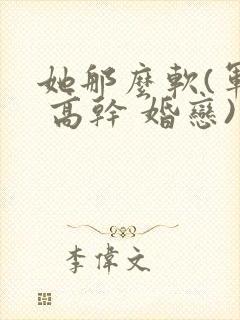 她那麼軟(軍
高幹 婚戀)
李偉文